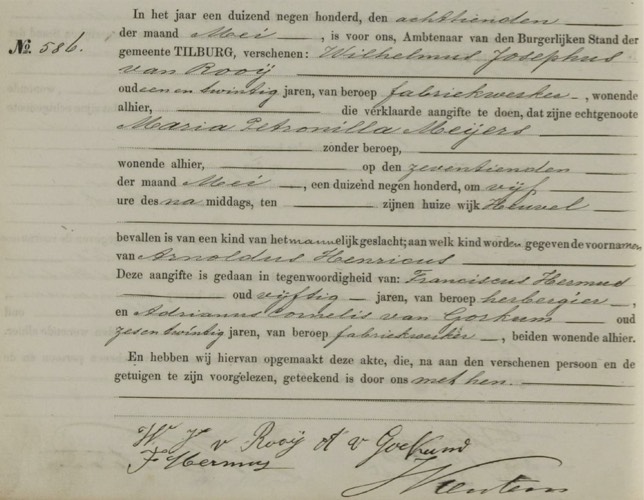 In het jaar een duizend negen honderd, den achttienden
der maand Mei, is voor ons, Ambtenaar van den Burgerlijken Stand der
No. 586. gemeente TILBURG, verschenen: Wilhelmus Josephus
van Rooij
oud een en twintig jaren, van beroep fabriekwerker, wonende
alhier, die verklaarde aangifte te doen, dat zijne echtgenoote
Maria Petronilla Meijers
zonder beroep,
wonende alhier, op den zeventienden
der maand Mei, een duizend negen honderd, om vijf
ure des na middags, ten zijnen huize wijk Heuvel
bevallen is van een kind van het mannelijk geslacht; aan welk kind worden gegeven de voornamen
van Arnoldus Henricus
Deze aangifte is gedaan in tegenwoordigheid van: Franciscus Hermus
oud vijftig jaren, van beroep herbergier,
en Adrianus Cornelis van Gorkum oud
zes en twintig jaren, van beroep fabriekwerker, beiden wonende alhier.
En hebben wij hiervan opgemaakt deze akte, die, na aan den verschenen persoon en de
getuigen te zijn voorgelezen, geteekend is door ons met hen.
W. J. v Rooij A v Gorkum
F. Hermus